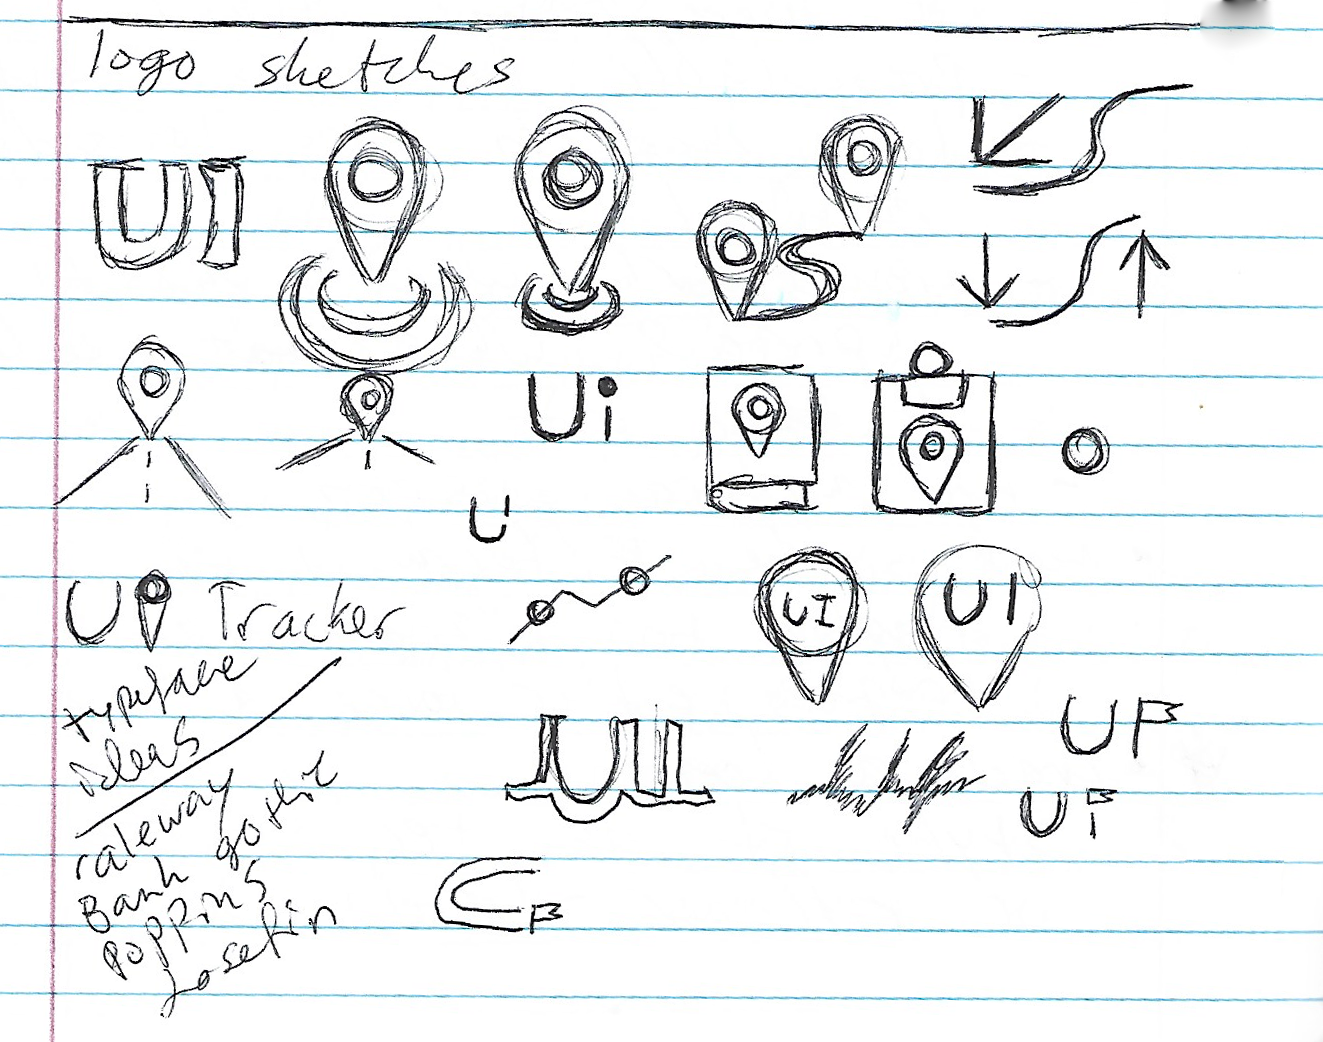 logo sketches
UI
Ui
U
U Tracker
UI
UI
typeface
ideas
raleway
Bank gothic
poppins
Josefin
UI
U
U